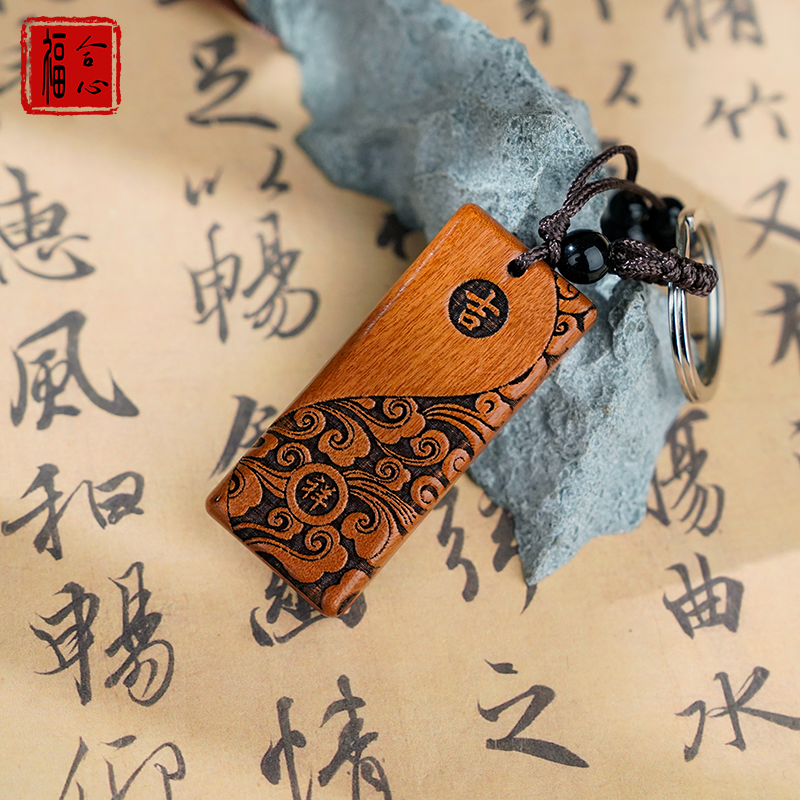 福合心
吉
祥
竹又
觴曲水
之
足以暢
情
惠風和暢仰